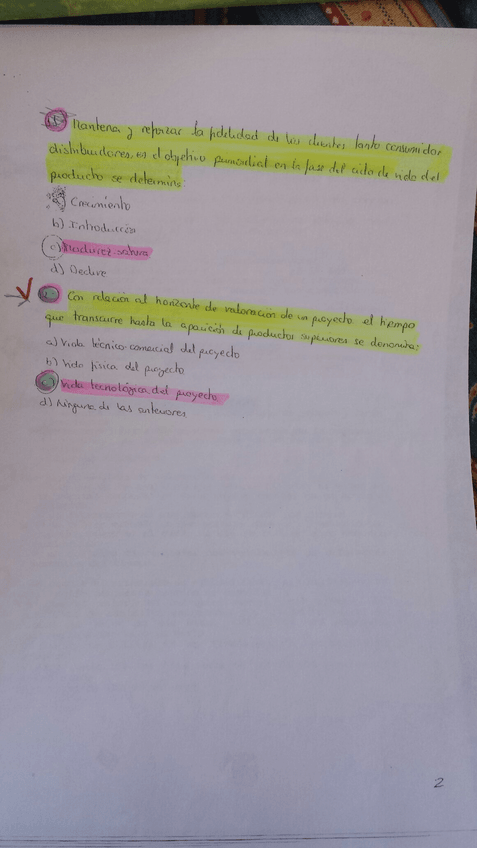 Mantener y reforzar la fidelidad de los clientes tanto consumidor
distribuidores, es el objetivo primordial en la fase del ciclo de vida del
producto se determina:
Crecimiento
b) Introducción
c) Madurez
d) Declive
Con relación al horizonte de valoración de un proyecto el tiempo
que transcurre hasta la aparición de productos superiores se denomina:
a) Vida técnico comercial del proyecto
b) Vida física del proyecto
c) Vida tecnológica del proyecto
d) Ninguna de las anteriores
2